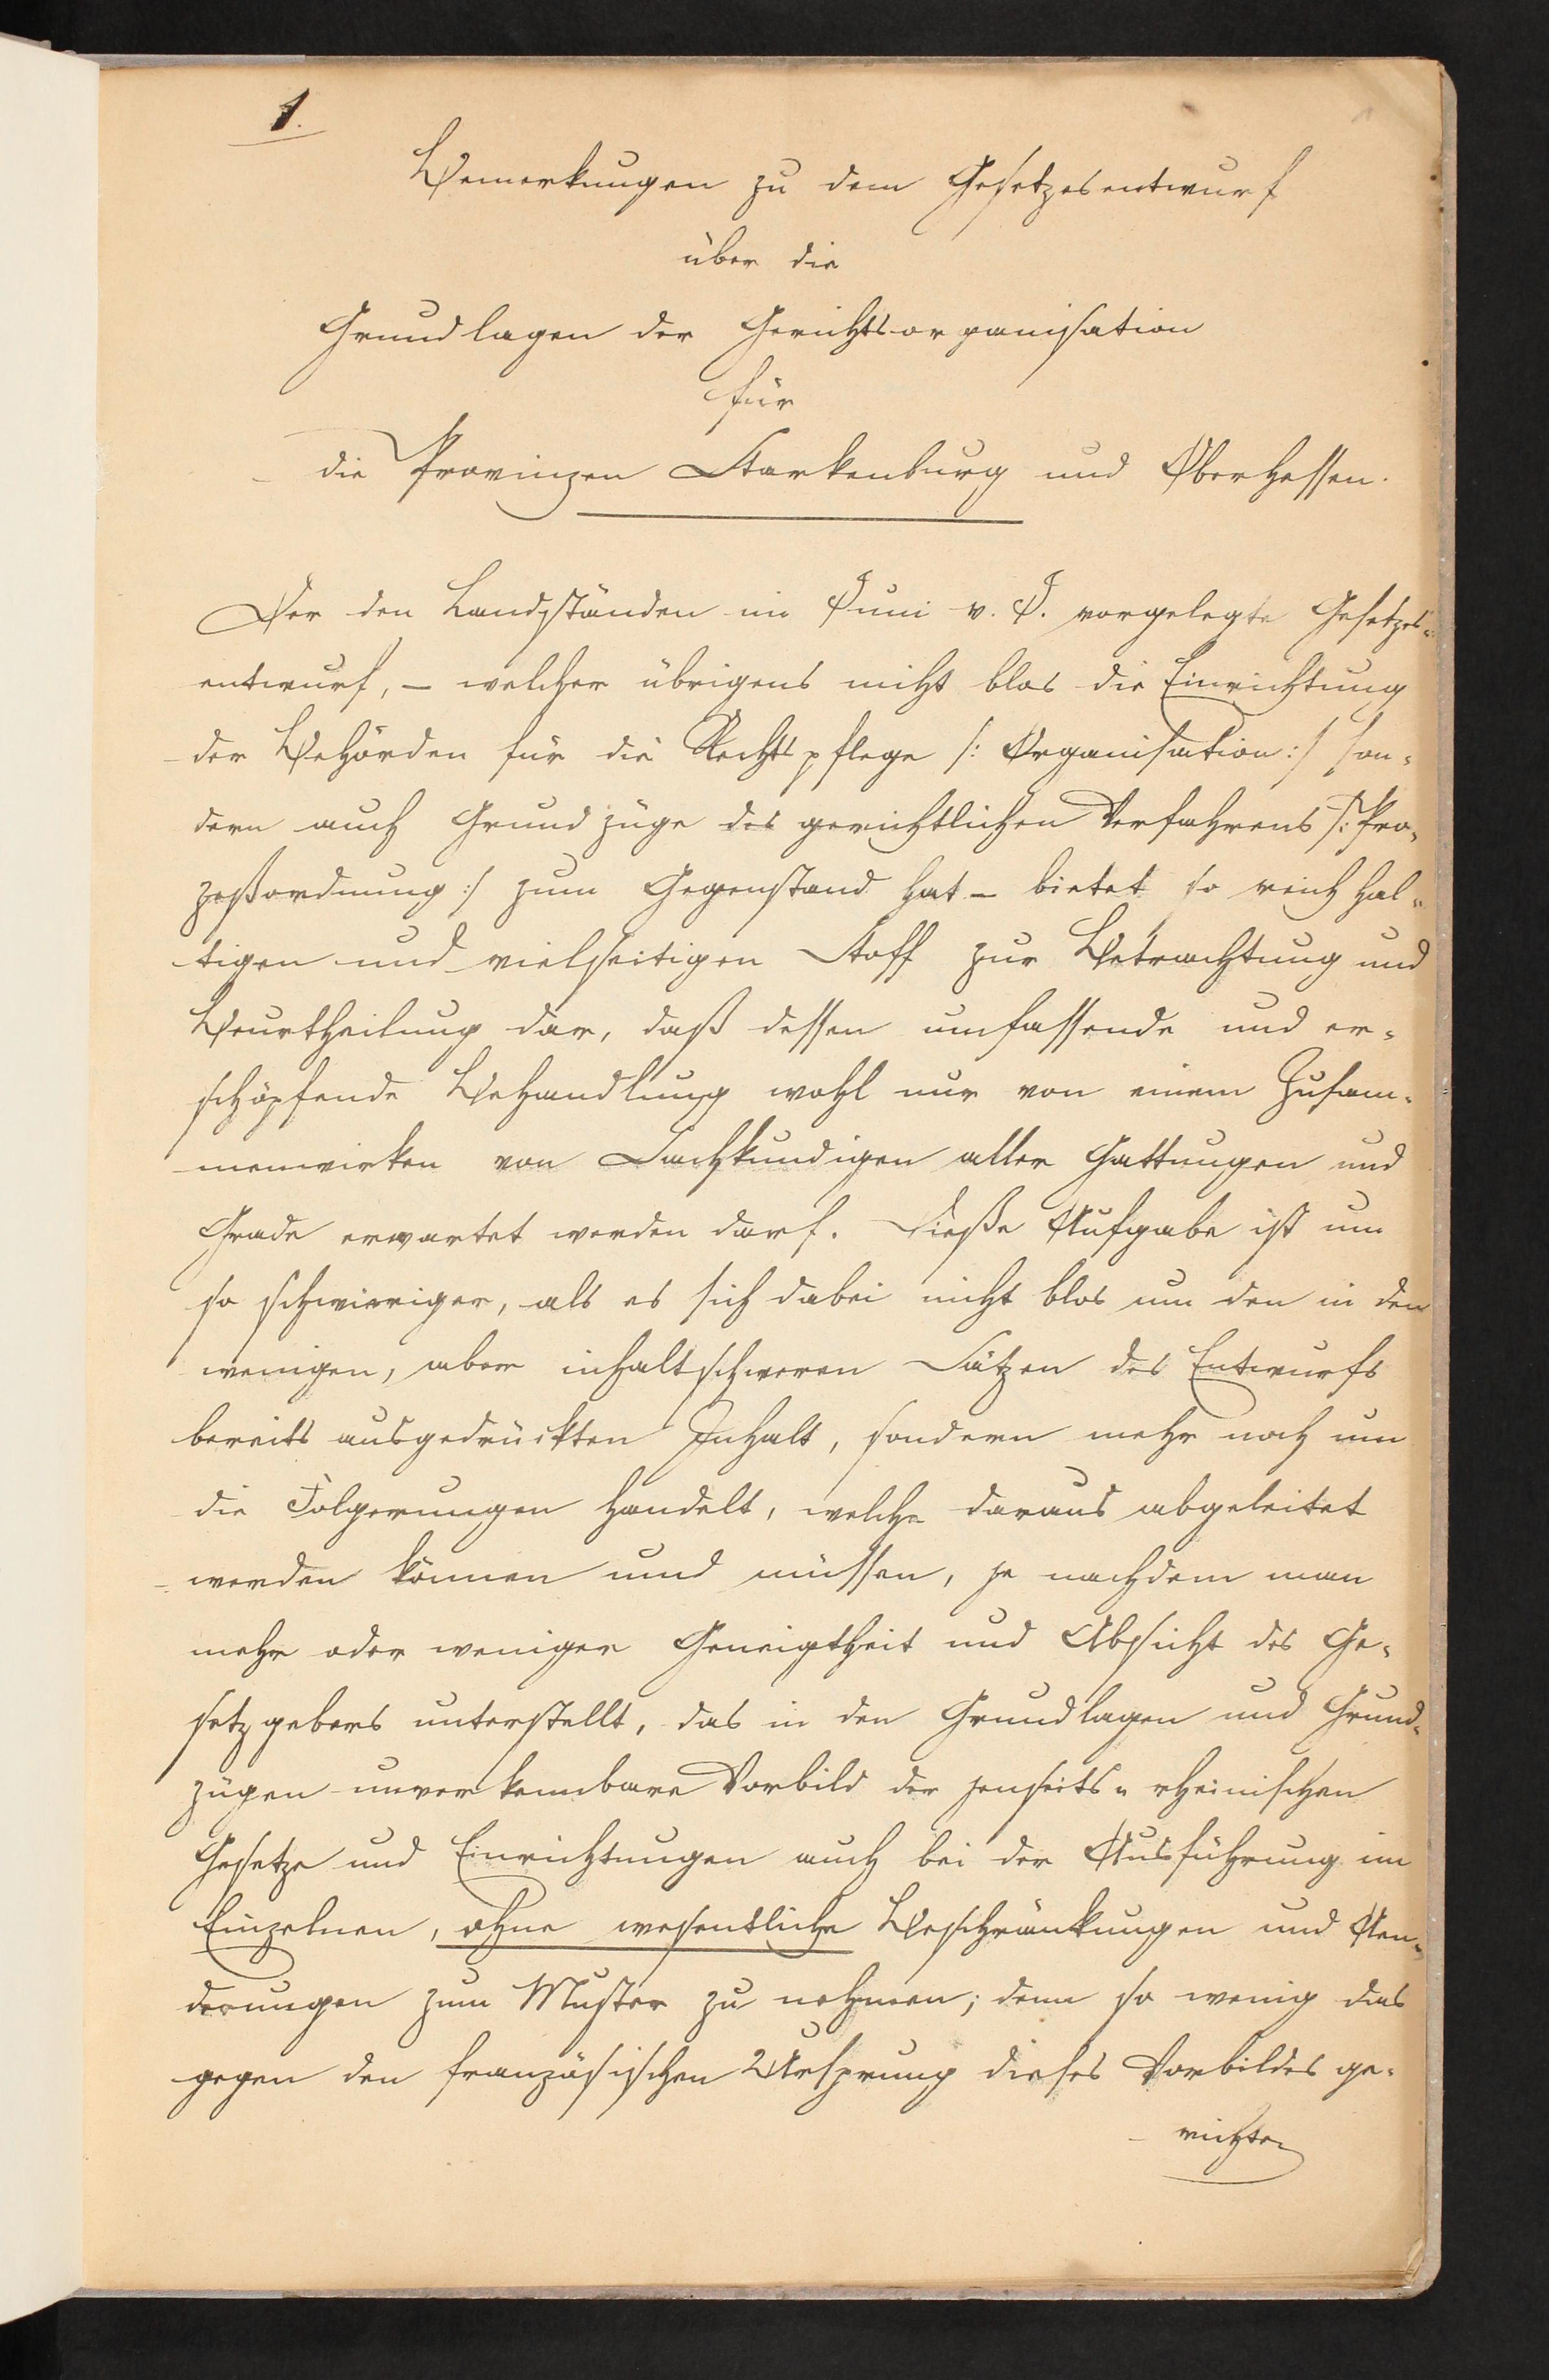 1.
Bemerkungen zu dem Gesetzesentwurf
über die
Grundlagen der Gerichtsorganisation
für
die Provinzen Starkenburg und Oberhessen.
Der den Landständen im Juni v. J. vorgelegte Gesetzes-
entwurf, – welcher übrigens nicht blos die Einrichtung
der Behörden für die Rechtspflege /: Organisation :/ son-
dern auch Grundzüge des gerichtlichen Verfahrens /: Pro-
zeßordnung :/ zum Gegenstand hat – bietet so reich hal-
tigen und vielseitigen Stoff zur Betrachtung und
Beurtheilung dar, daß dessen umfassende und er-
schöpfende Behandlung wohl nur von einem Zusam-
menwirken von Sachkundigen aller Gattungen und
Grade erwartet werden darf. Dieße Aufgabe ist um
so schwieriger, als es sich dabei nicht blos um den in den
wenigen, aber inhaltschweren Sätzen des Entwurfs
bereits ausgedrückten Inhalt, sondern mehr noch um
die Folgerungen handelt, welche daraus abgeleitet
werden können und müssen, je nachdem man
mehr oder weniger Geneigtheit und Absicht des Ge-
setzgebers unterstellt, das in den Grundlagen und Grund-
zügen unverkennbare Vorbild der jenseits-rheinischen
Gesetze und Einrichtungen auch bei der Ausführung im
Einzelnen, ohne wesentliche Beschränkungen und Aen-
derungen zum Muster zu nehmen; denn so wenig das
gegen den französischen Ursprung dieses Vorbildes ge-
richte